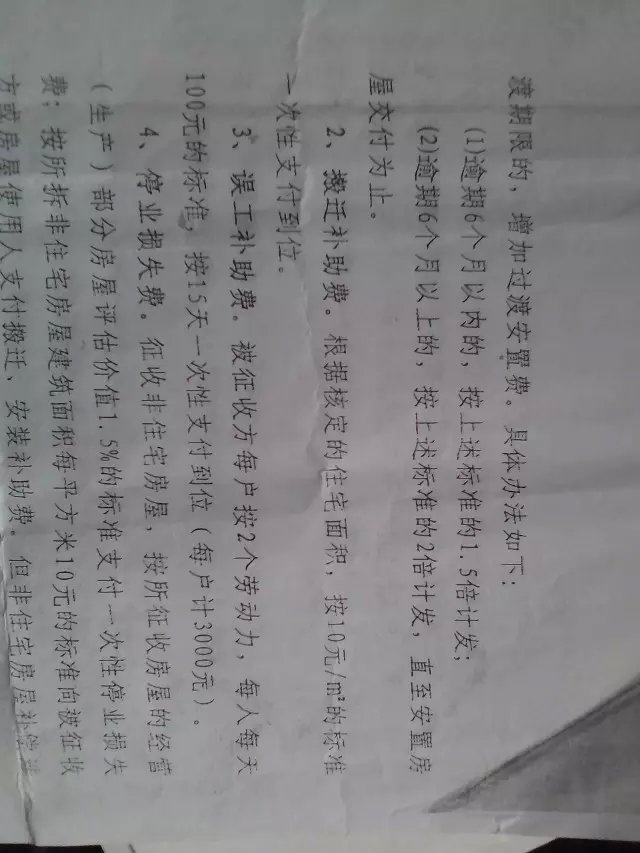 渡期限的，增加过渡安置费。具体办法如下：
(1)逾期6个月以内的，按上述标准的1.5倍计发；
(2)逾期6个月以上的，按上述标准的2倍计发，直至安置房
屋交付为止。
2、搬迁补助费。根据核定的住宅面积，按10元/m²的标准
一次性支付到位。
3、误工补助费。被征收方每户按2个劳动力，每人每天
100元的标准，按15天一次性支付到位（每户计3000元）。
4、停业损失费。征收非住宅房屋，按所征收房屋的经营
（生产）部分房屋评估价值1.5%的标准支付一次性停业损失
费；按所拆非住宅房屋建筑面积每平方米10元的标准向被征收
方或房屋使用人支付搬迁、安装补助费。但非住宅房屋补偿